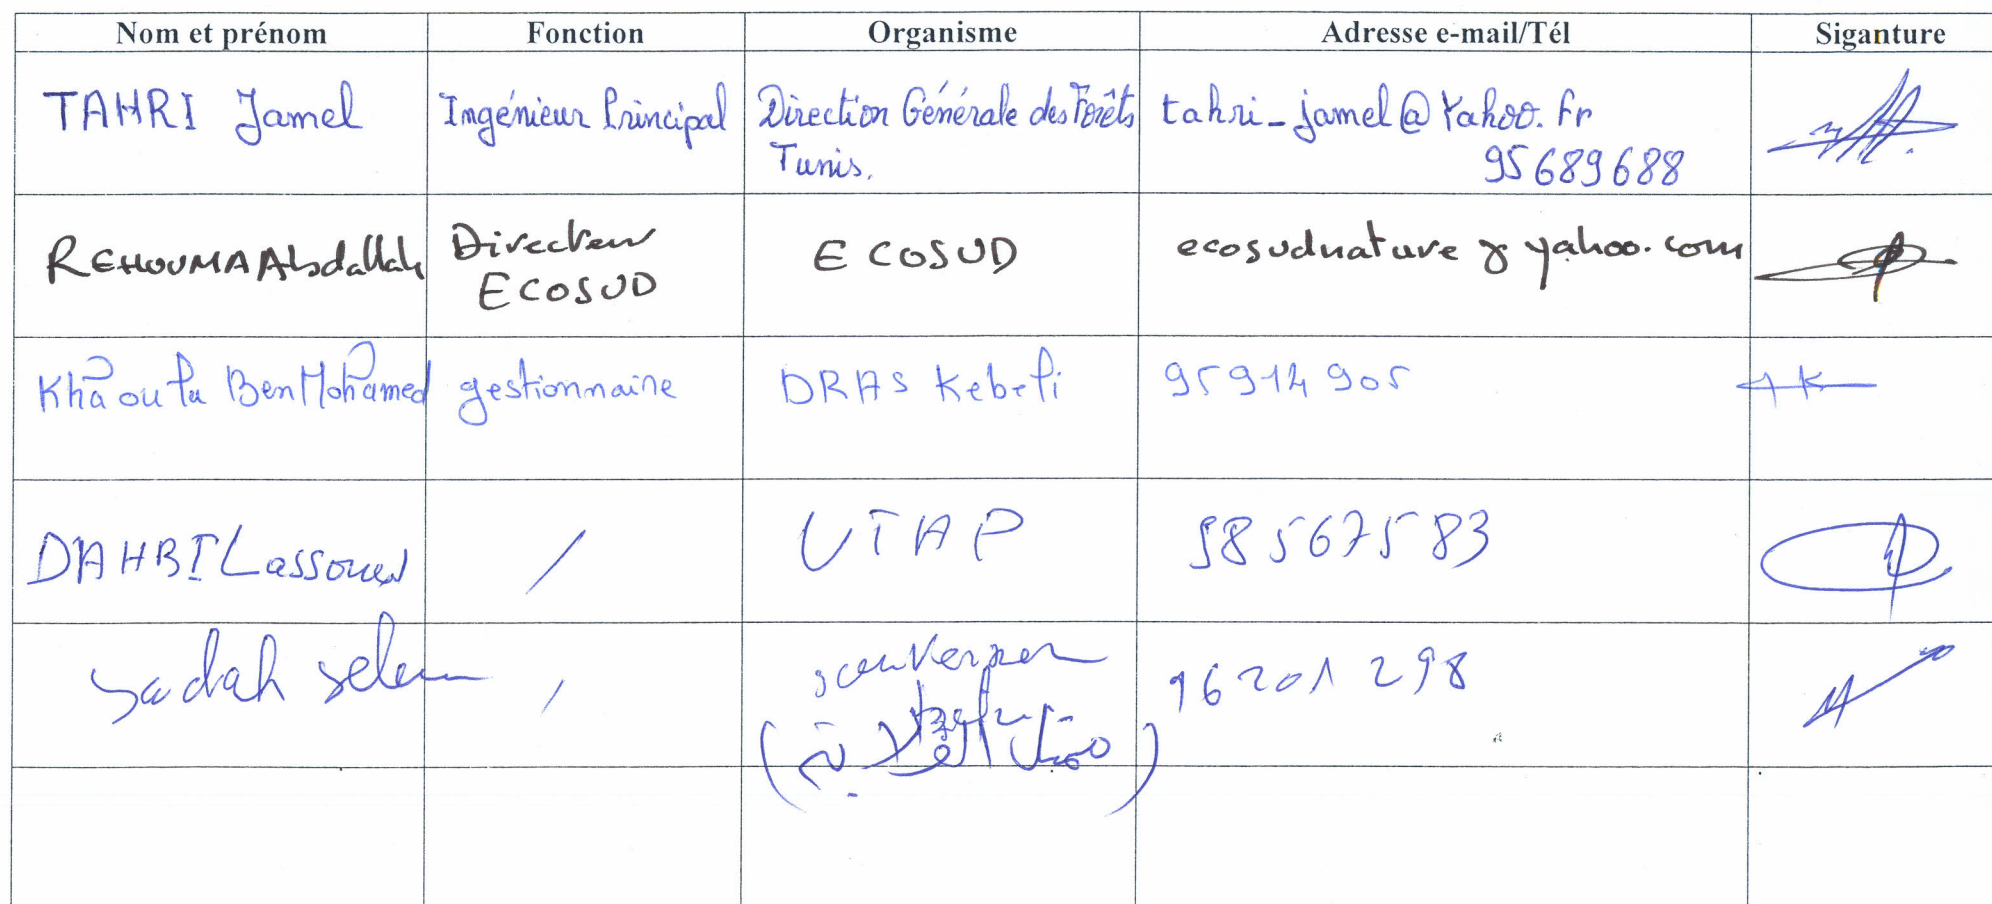 Nom et prénom Fonction Organisme Adresse e-mail/Tél Siganture
TAHRI Jamel Ingénieur Principal Direction Générale des Forêts tahri_jamel@Yahoo.fr
Tunis. 95689688
REHOUMA Abdallah Directeur E COSUD ecosudnature @ yahoo.com
ECOSUD
Khaoula Ben Mohamed gestionnaire DRAS Kebeli 95914905
DAHBI Lassoued / UTAP 98567583
sadah selem / 96201298